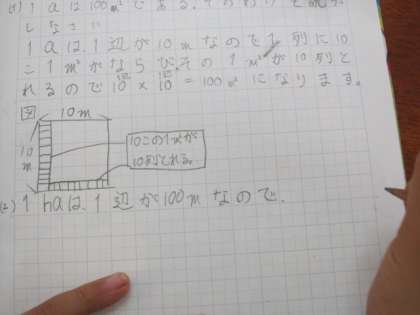 (1) 1 aは100m²である。そのわけを説明
しなさい
1 aは、1辺が10mなので1列に10
こ1m²がならびその1m²が10列と
れるので10×10=100m²になります。
図
10m
10m
10この1m²が
10列とれる。
(2) 1 haは、1辺が100mなので、